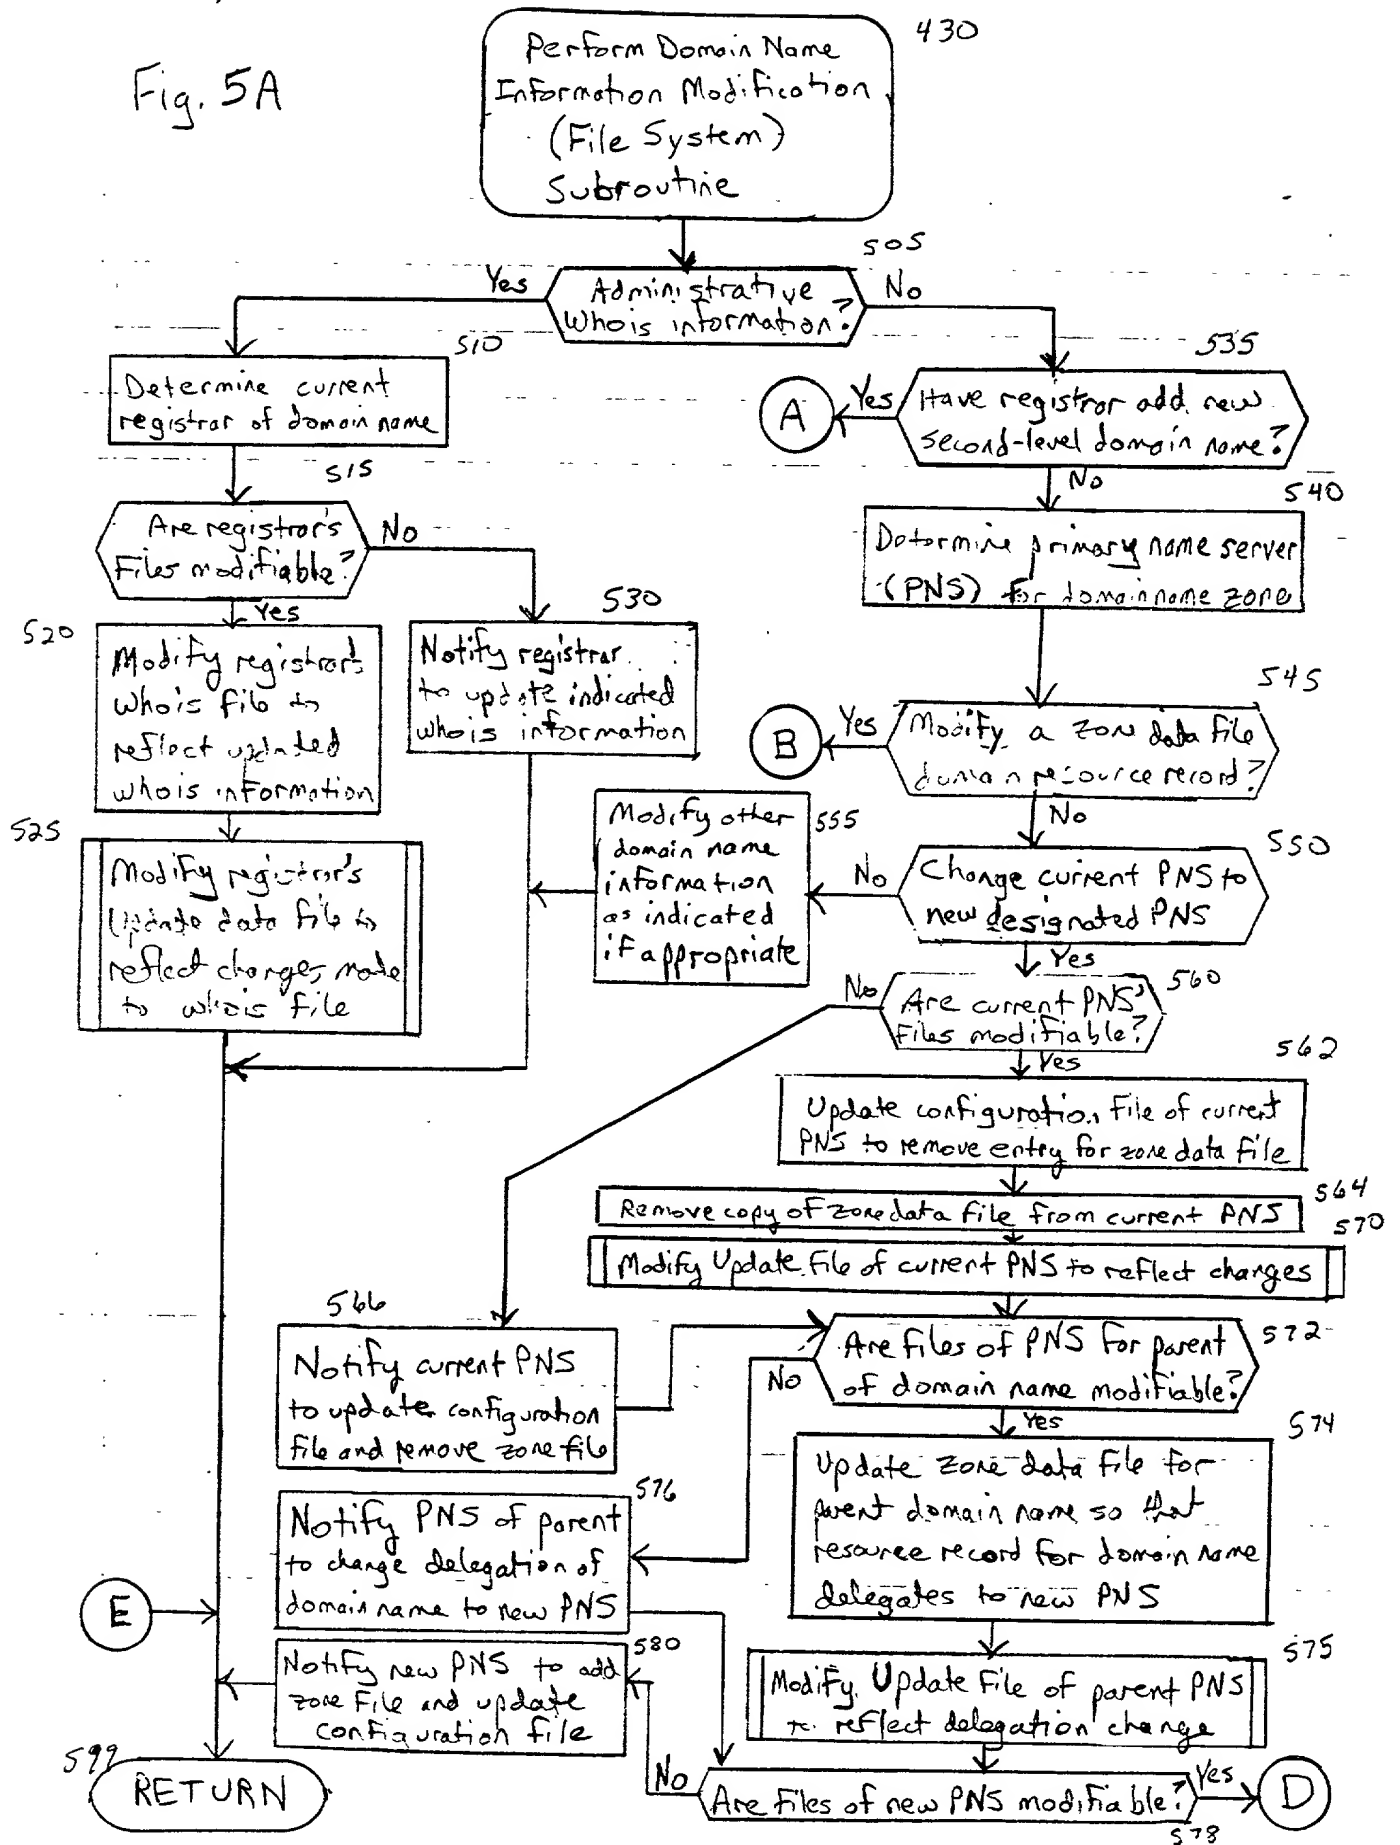 Fig. 5A
430
Perform Domain Name
Information Modification
(File System)
Subroutine
505
Administrative
Whois information?
Yes
No
510
Determine current
registrar of domain name
515
Are registrar's
Files modifiable?
No
Yes
520
Modify registrar's
whois file to
reflect updated
whois information
530
Notify registrar
to update indicated
whois information
525
Modify registrar's
Update data file to
reflect changes made
to whois file
535
Have registrar add new
second-level domain name?
Yes
A
No
540
Determine primary name server
(PNS) for domain name zone
545
Modify a zone data file
domain resource record?
Yes
B
No
550
Change current PNS to
new designated PNS
No
555
Modify other
domain name
information
as indicated
if appropriate
Yes
560
Are current PNS'
files modifiable?
No
Yes
562
Update configuration file of current
PNS to remove entry for zone data file
564
Remove copy of zone data file from current PNS
570
Modify Update file of current PNS to reflect changes
566
Notify current PNS
to update configuration
file and remove zone file
572
Are files of PNS for parent
of domain name modifiable?
No
Yes
574
Update zone data file for
parent domain name so that
resource record for domain name
delegates to new PNS
576
Notify PNS of parent
to change delegation of
domain name to new PNS
E
575
Modify Update file of parent PNS
to reflect delegation change
580
Notify new PNS to add
zone file and update
configuration file
578
Are files of new PNS modifiable?
No
Yes
D
599
RETURN